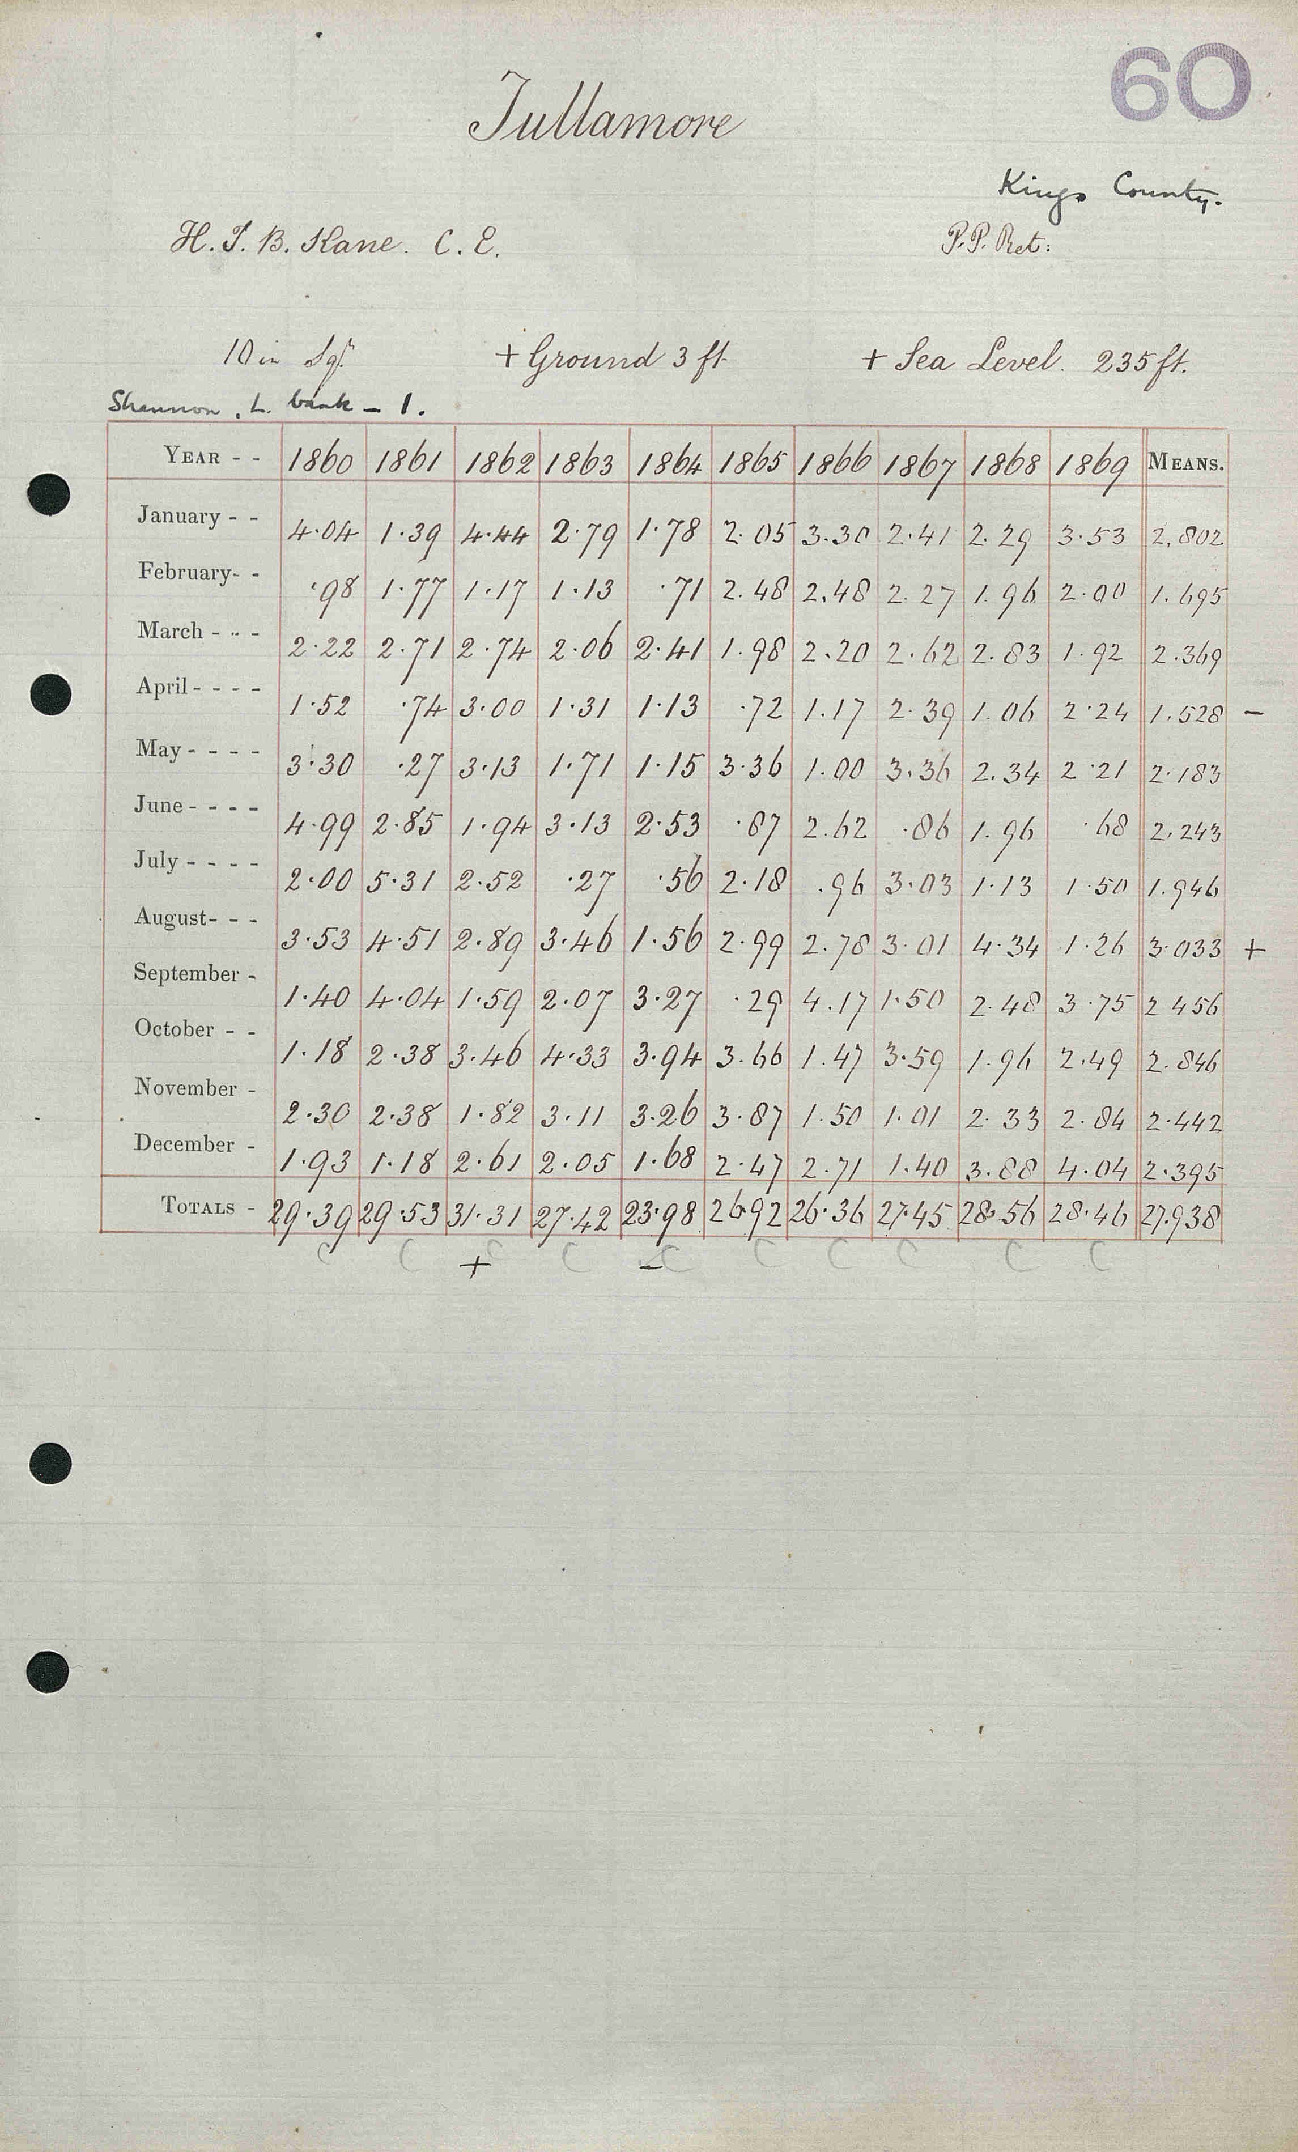 60
Tullamore
Kings County.
H. T. B. Kane. C. E. P.P. Ret:
10 in Sqr + Ground 3 ft + Sea Level. 235 ft.
Shannon, L. bank - 1.
YEAR - - 1860 1861 1862 1863 1864 1865 1866 1867 1868 1869 MEANS.
January - - 4.04 1.39 4.44 2.79 1.78 2.05 3.30 2.41 2.29 3.53 2.802
February- - .98 1.77 1.17 1.13 .71 2.48 2.48 2.27 1.96 2.00 1.695
March - - - 2.22 2.71 2.74 2.06 2.41 1.98 2.20 2.62 2.83 1.92 2.369
April - - - - 1.52 .74 3.00 1.31 1.13 .72 1.17 2.39 1.06 2.24 1.528 -
May - - - - 3.30 .27 3.13 1.71 1.15 3.36 1.00 3.36 2.34 2.21 2.183
June - - - - 4.99 2.85 1.94 3.13 2.53 .87 2.62 .86 1.96 .68 2.243
July - - - - 2.00 5.31 2.52 .27 .56 2.18 .96 3.03 1.13 1.50 1.946
August- - - 3.53 4.51 2.89 3.46 1.56 2.99 2.78 3.01 4.34 1.26 3.033 +
September - 1.40 4.04 1.59 2.07 3.27 .29 4.17 1.50 2.48 3.75 2 456
October - - 1.18 2.38 3.46 4.33 3.94 3.66 1.47 3.59 1.96 2.49 2.846
November - 2.30 2.38 1.82 3.11 3.26 3.87 1.50 1.01 2.33 2.84 2.442
December - 1.93 1.18 2.61 2.05 1.68 2.47 2.71 1.40 3.88 4.04 2.395
TOTALS - 29.39 29.53 31.31 27.42 23.98 26.92 26.36 27.45 28.56 28.46 27.938
C C + C C - C C C C C C